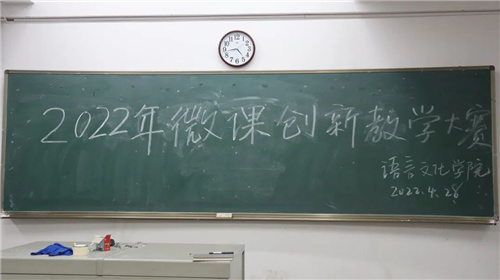 2022年微课创新教学大赛
语言文化学院
2022.4.28